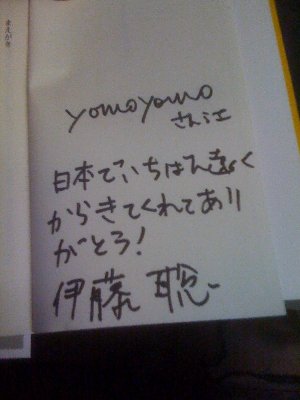 まえがき
yomoyomo
さん江
日本でいちばん遠く
からきてくれてあり
がとう!
伊藤 聡